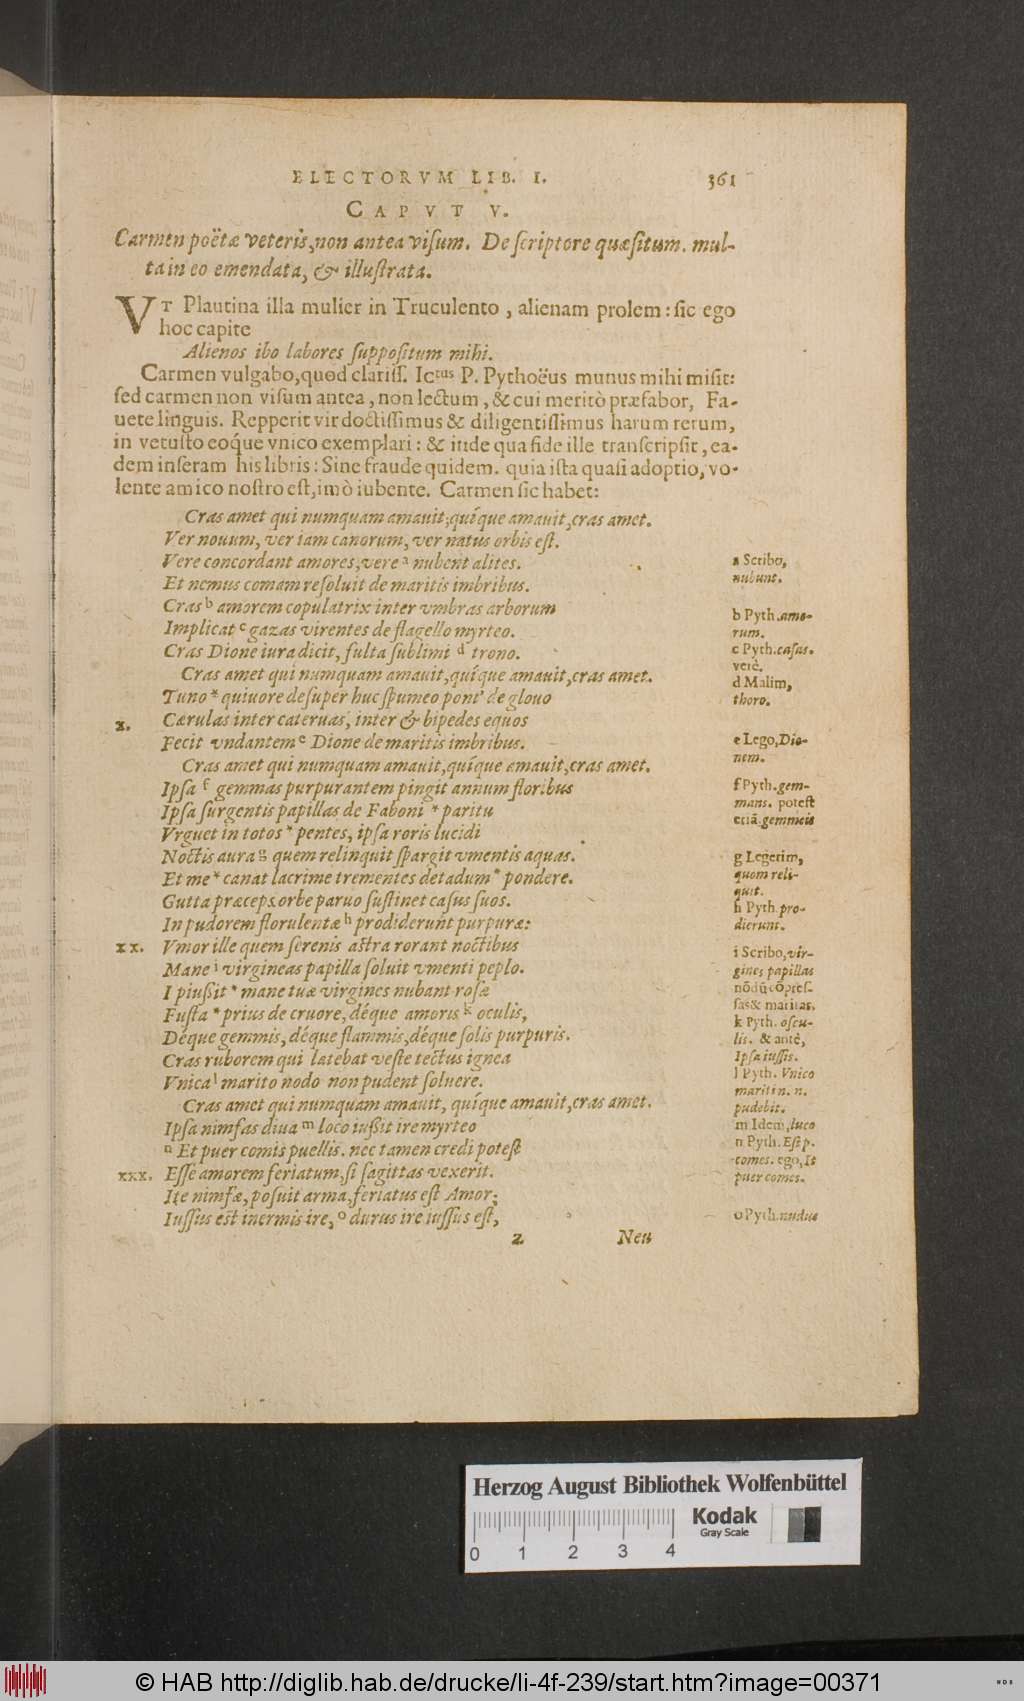 ELECTORVM LIB. I. 361
CAPVT V.
Carmen poëtæ veteris, non antea visum. De scriptore quæsitum. mul-
ta in eo emendata, & illustrata.
VT Plautina illa mulier in Truculento, alienam prolem: sic ego
hoc capite
Alienos ibo labores suppositum mihi.
Carmen vulgabo, quod clariss. Ictus P. Pythoëus munus mihi misit:
sed carmen non visum antea, non lectum, & cui meritò præfabor, Fa-
uete linguis. Repperit vir doctissimus & diligentissimus harum rerum,
in vetusto eoque vnico exemplari: & inde qua fide ille transcripsit, ea-
dem inseram his libris: Sine fraude quidem. quia ista quasi adoptio, vo-
lente amico nostro est, imò iubente. Carmen sic habet:
Cras amet qui numquam amauit; quíque amauit, cras amet.
Ver nouum, ver iam canorum, ver natus orbis est.
Vere concordant amores, vere a nubent alites.
a Scribo,
nubunt.
Et nemus comam resoluit de maritis imbribus.
Cras b amorem copulatrix inter vmbras arborum
b Pyth. amo-
rum.
Implicat c gazas virentes de flagello myrteo.
c Pyth. casas.
verè.
Cras Dione iura dicit, fulta sublimi d trono.
d Malim,
thoro.
Cras amet qui numquam amauit, quíque amauit, cras amet.
Tuno * quiuore de super huc spumeo pont' de glouo
X. Cærulas inter cateruas, inter & bipedes equos
Fecit vndantem e Dione de maritis imbribus.
e Lego, Dio-
nem.
Cras amet qui numquam amauit, quíque amauit, cras amet.
Ipsa f gemmas purpurantem pingit annum floribus
f Pyth. gem-
mans. potest
etiã. gemmeis
Ipsa surgentis papillas de Faboni * paritu
Vrguet in totos * pentes, ipsa roris lucidi
Noctis aura g quem relinquit spargit vmentis aquas.
g Legerim,
quom reli-
quit.
Et me * canat lacrime trementes de tadum * pondere.
Gutta præceps orbe paruo sustinet casus suos.
In pudorem florulentæ h prodiderunt purpuræ:
h Pyth. pro-
dierunt.
XX. Vmor ille quem serenis astra rorant noctibus
Mane i virgineas papilla soluit vmenti peplo.
i Scribo, vir-
gines papillas
nõdũ cõpres-
sas & maritas.
I piussit * mane tuæ virgines nubant rosæ
Fusta * prius de cruore, déque amoris k oculis,
k Pyth. oscu-
lis. & antè,
Ipsa iussis.
Déque gemmis, déque flammis, déque solis purpuris.
Cras ruborem qui latebat veste tectus ignea
Vnica l marito nodo non pudent soluere.
l Pyth. Vnico
marit in. n.
pudebit.
Cras amet qui numquam amauit, quíque amauit, cras amet.
Ipsa nimfas diua m loco iussit ire myrteo
m Idem, luco
n Et puer comis puellis. nec tamen credi potest
n Pyth. Est p.
comes. ego, It
puer comes.
XXX. Esse amorem feriatum, si sagittas vexerit.
Ite nimfæ, posuit arma, feriatus est Amor;
Iussus est inermis ire, o durus ire iussus est,
o Pyth. nudus
z Neu
Herzog August Bibliothek Wolfenbüttel
Kodak
Gray Scale
0 1 2 3 4
© HAB http://diglib.hab.de/drucke/li-4f-239/start.htm?image=00371